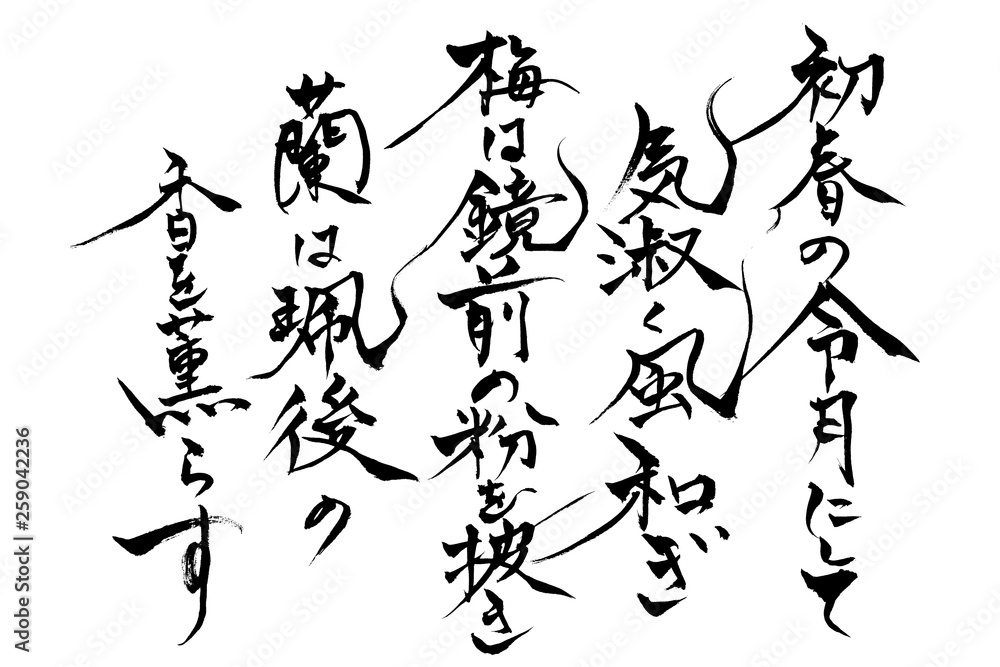 初春の令月にして
気淑く風和ぎ
梅は鏡前の粉を披き
蘭は珮後の
香を薫らす
Adobe Stock | #259042236